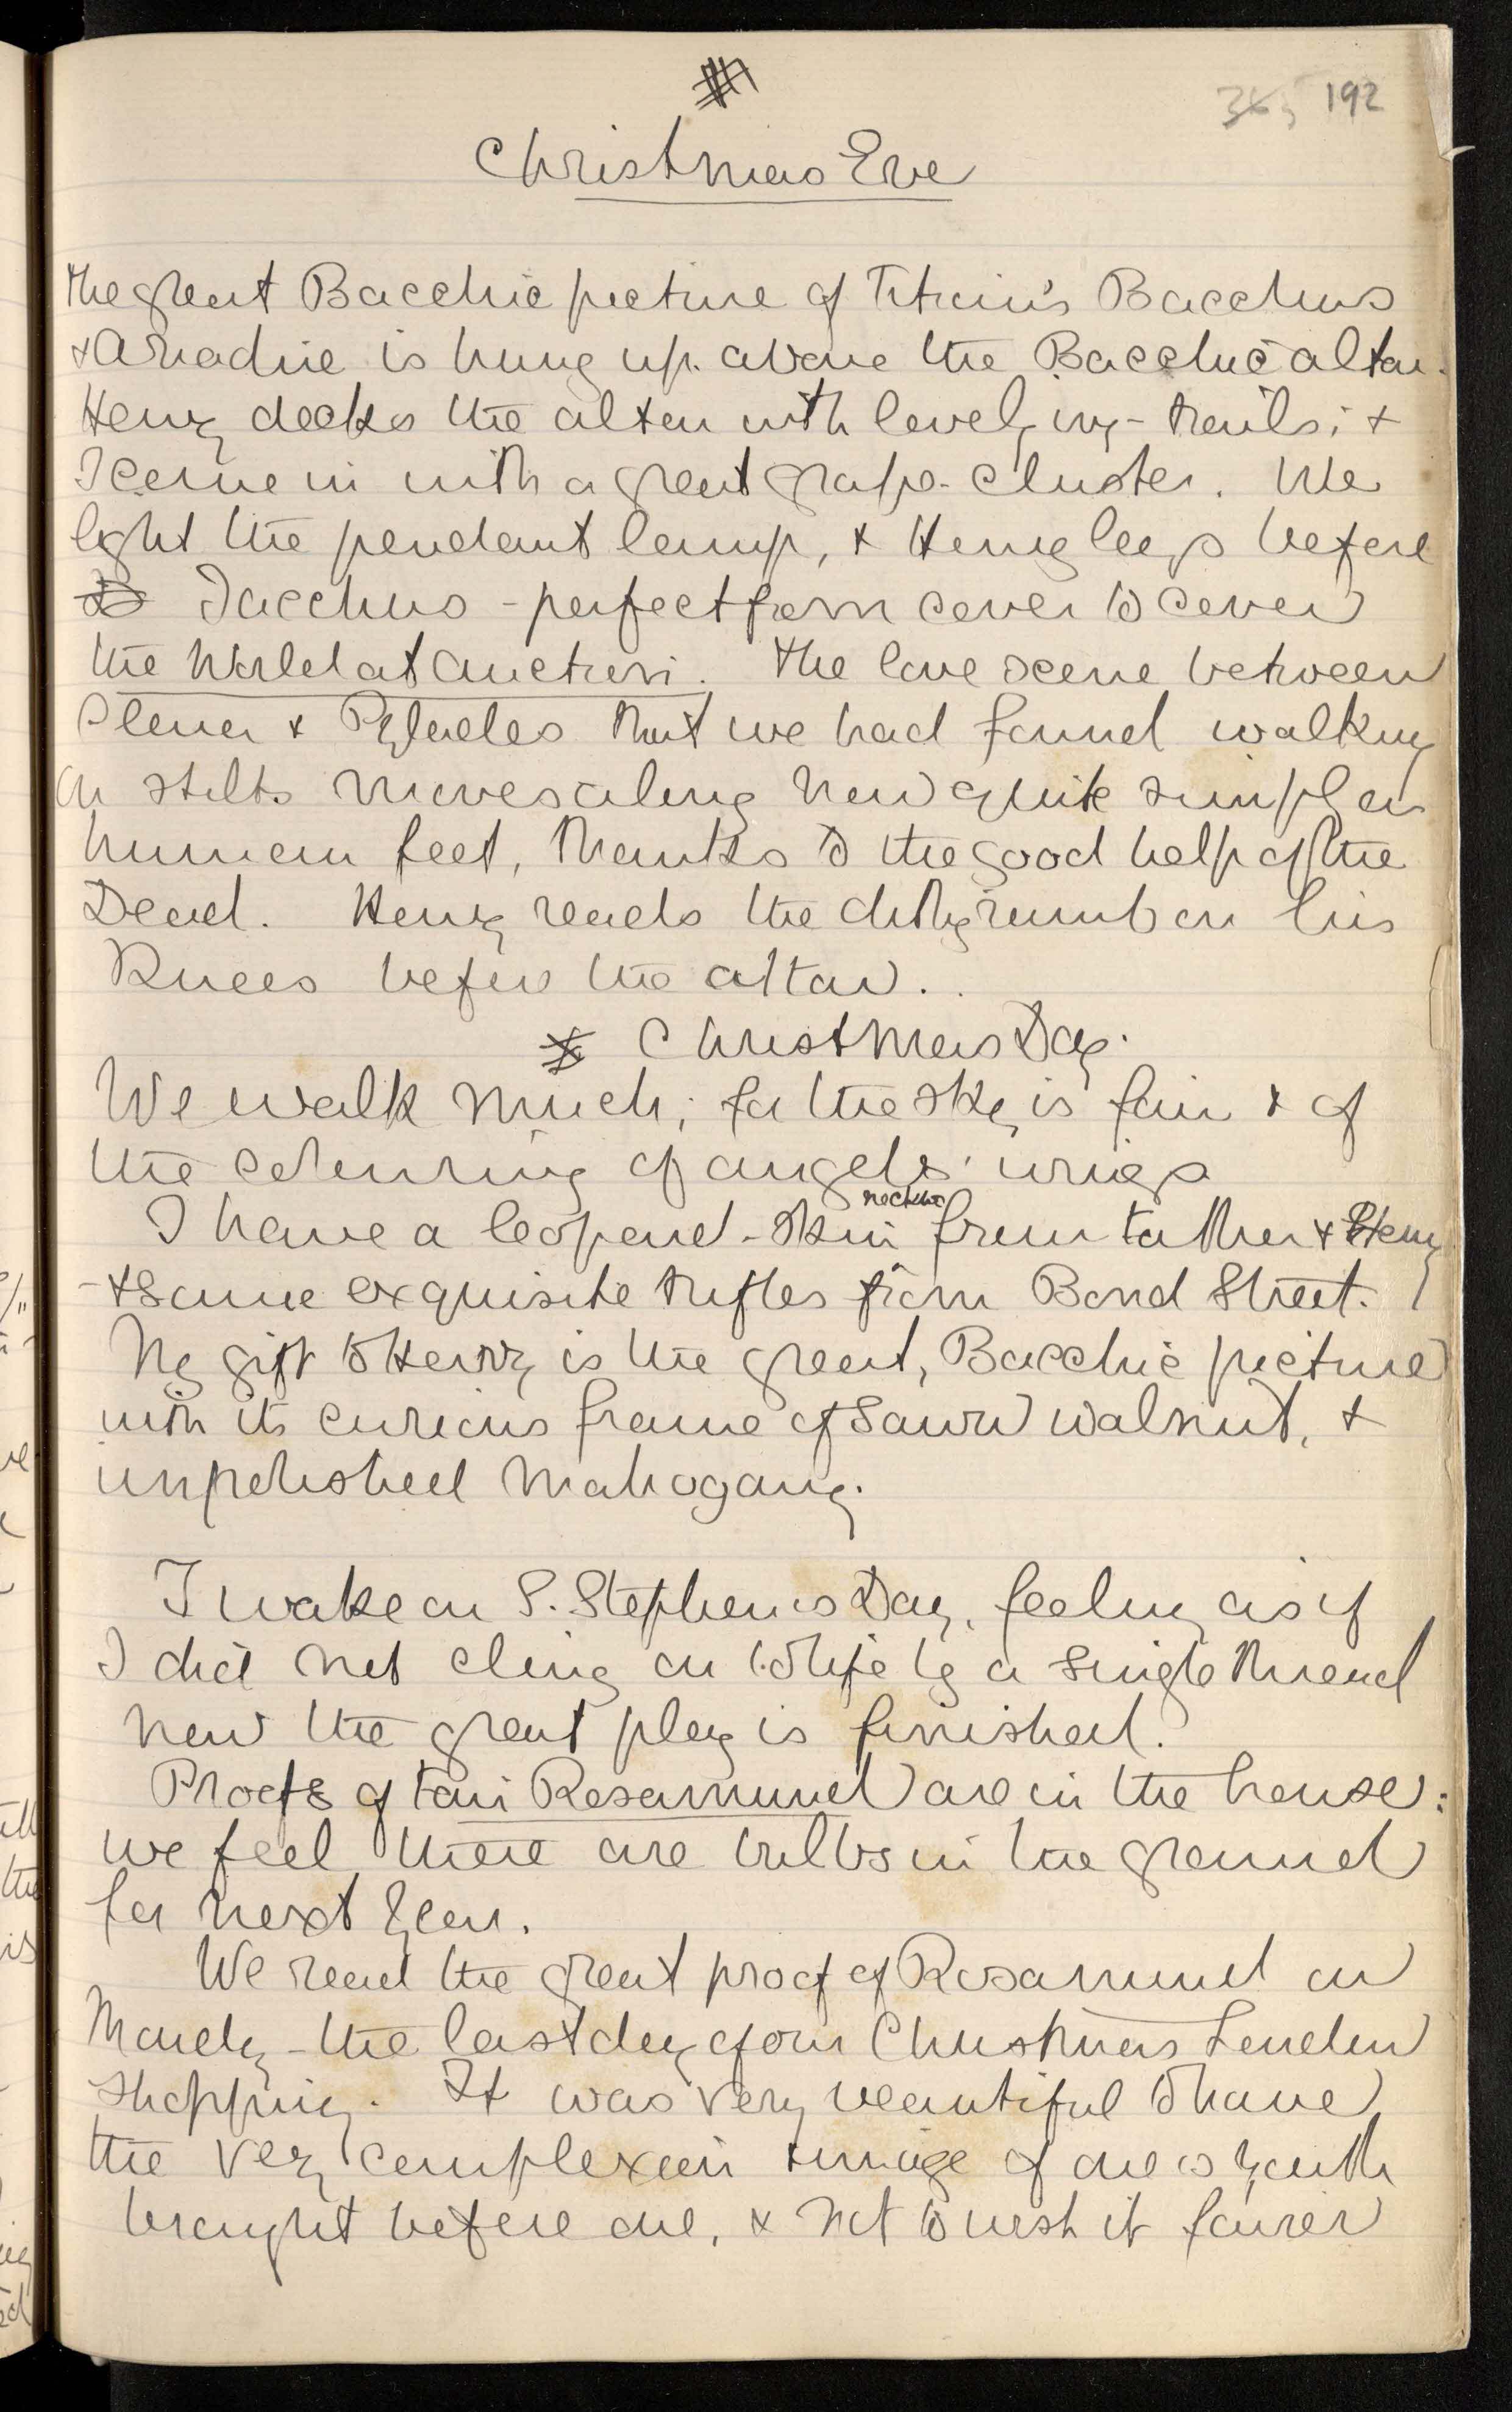 192
Christmas Eve
The great Bacchic picture of Titian's Bacchus
& Ariadne is hung up above the Bacchic altar.
Henry decks the altar with lovely ivy-trails; &
I come in with a great grape-cluster. We
light the pendant lamp, & Henry lays before
Iacchus - perfect from cover to cover
the World at Auction. The love scene between
& Pylades that we had found walking
on stilts moves along now quite simply on
human feet, thanks to the good help of the
Dead. Henry reads the dithyramb on his
Knees before the altar..
Christmas Day.
We walk much; for the sky is fair & of
the colouring of angels' wings
I have a leopard-skin necklet from father & Henry
- & some exquisite trifles from Bond Street.
My gift to Henry is the great, Bacchic picture
with its curious frame of sawn walnut, &
unpolished mahogany.
I wake on S. Stephen's Day, feeling as if
I did not cling on to life by a single thread
now the great play is finished.
Proofs of Fair Rosamund are in the house:
we feel there are bulbs in the ground
for next year.
We read the great proof of Rosamund on
Monday - the last day of our Christmas London
shopping. It was very beautiful to have
the very complexion & image of one's youth
brought before one, & not to wish it fairer